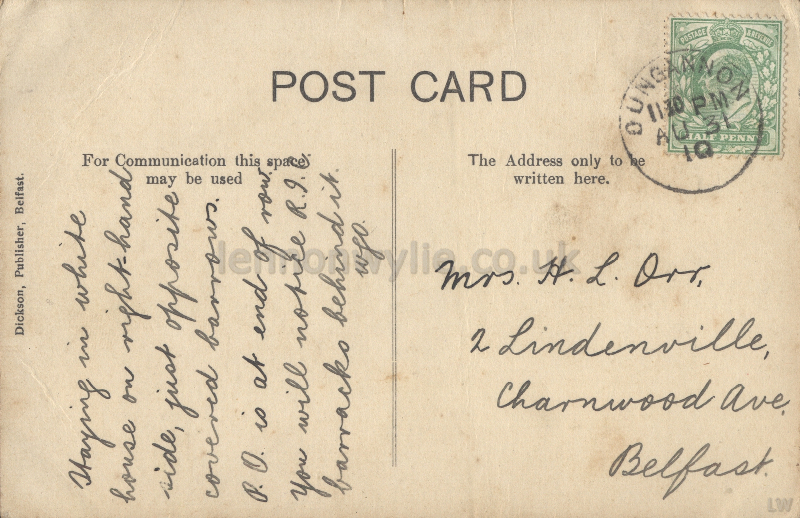 POST CARD
For Communication this space
may be used
The Address only to be
written here.
POSTAGE REVENUE
HALF PENNY
DUNGANNON
11 30 PM
AU 31
10
Dickson, Publisher, Belfast.
Staying in white
house on right-hand
side, just opposite
covered barrows.
P.O. is at end of row.
You will notice R.I.C.
barracks behind it.
WJO.
Mrs. H. L. Orr,
2 Lindenville,
Charnwood Ave,
Belfast.
lennonwylie.co.uk
LW